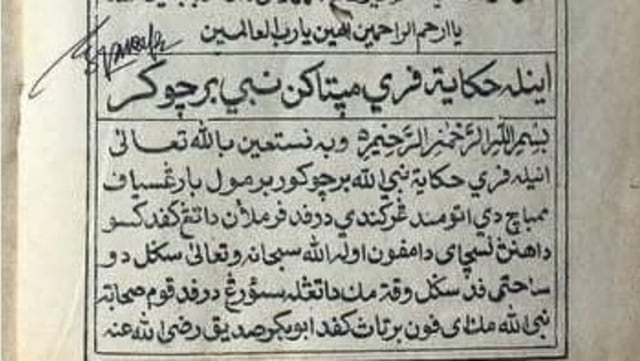 ياارحم الراحمين امين يارب العالمين
اينله حكاية فري مپتاكن نبي برچوكر
بسم الله الرحمن الرحيم وبه نستعين بالله تعالى
انيله فري حكاية نبي الله برچوكور برمول بارغسياف
ممباچ دي اتومندغركندي درفد فرملأن داتغ كفد كسو
داهنڽ نسچاي دامفون اوله الله سبحانه وتعالى سكل دو
ساحتى فد سكل وقة مك داتغله سؤرغ درفد قوم صحابة
نبي الله مك اي فون برتاڽ كفد ابو بكر صديق رضي الله عنه